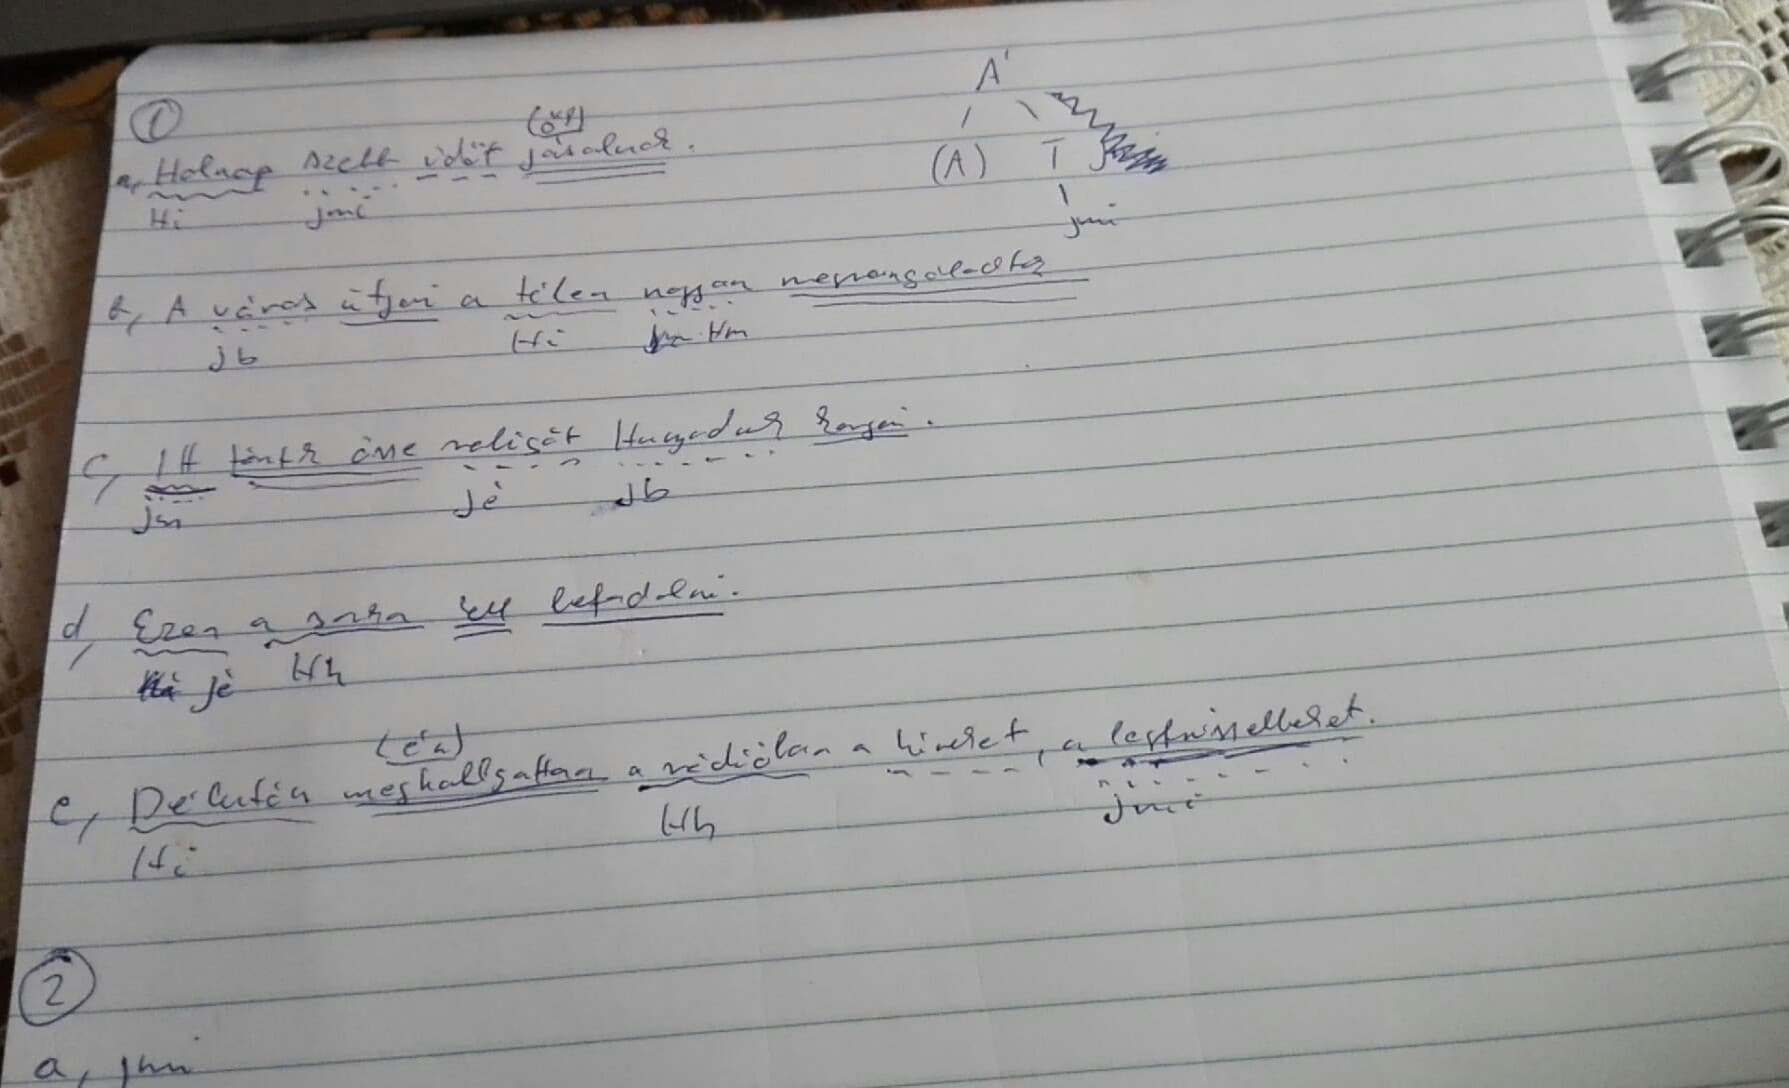 ①
(ők)
a, Holnap szebb időt jósolnak.
Hi jmi
A'
(A) T
jmi
b, A város útjai a télen nagyon megrongálódtak
jb Hi Hm
c, Itt törtk össze Hunyadiak
jm jé jb
d, Ezen a kell befordulni.
jé Hh
(én)
e, Délután meghallgattam a rádióban a híreket, a legfrissebbeket.
Hi Hh jmi
②
a, jmi